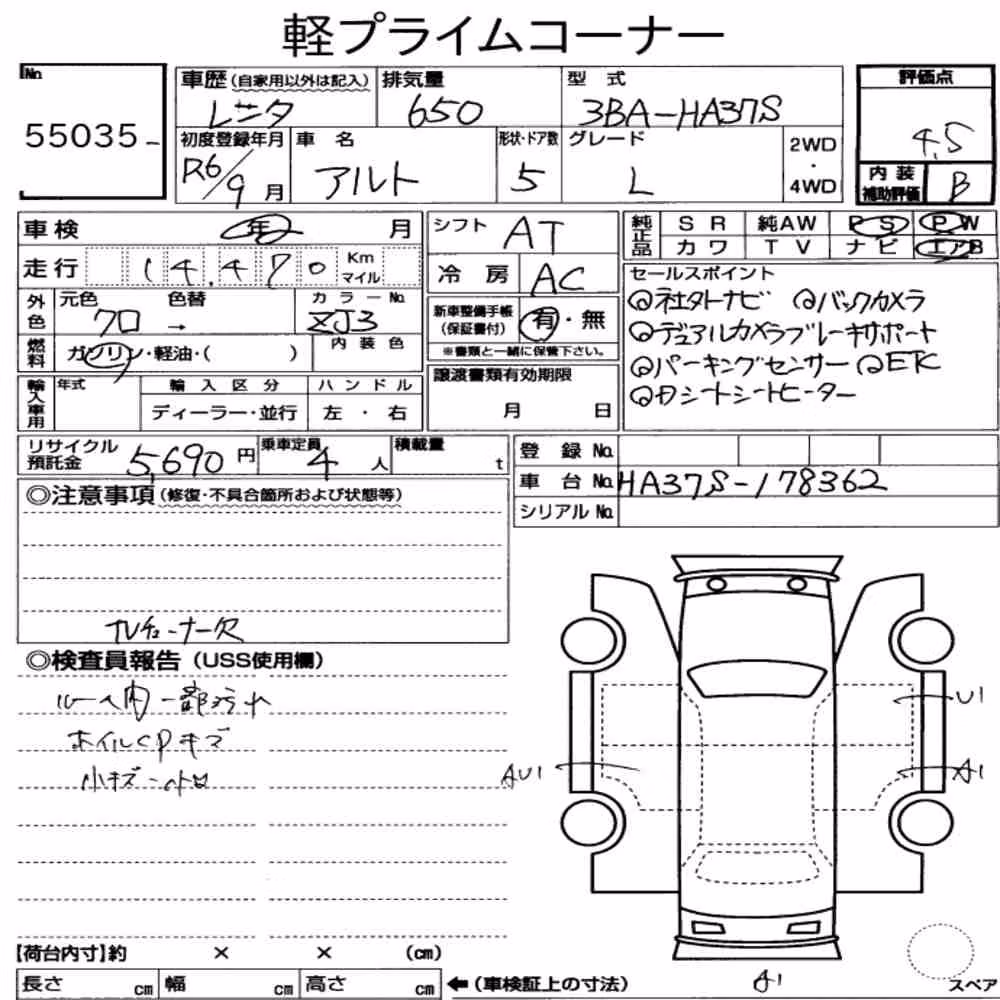 軽プライムコーナー
No.
55035
車歴 (自家用以外は記入) レンタ
排気量 650
型式 3BA-HA37S
評価点 4.5
初度登録年月 R6/9月
車名 アルト
形状・ドア数 5
グレード L
2WD・4WD
内装補助評価 B
車検 年 月
シフト AT
純正品 SR 純AW PS PW
カワ TV ナビ エアB
走行 14,470 Km マイル
冷房 AC
セールスポイント
◎社外ナビ ◎バックカメラ
◎デュアルカメラブレーキサポート
◎パーキングセンサー ◎ETC
◎Dシートシートヒーター
外色 元色 クロ → 色替
カラーNo. ZJ3
新車整備手帳(保証書付) 有・無
※書類と一緒に保管下さい。
燃料 ガソリン・軽油・( )
内装色
譲渡書類有効期限
月 日
輸入車用 年式
輸入区分 ディーラー・並行
ハンドル 左・右
リサイクル預託金 5,690円
乗車定員 4人
積載量 t
登録No.
車台No. HA37S-178362
シリアルNo.
◎注意事項(修復・不具合箇所および状態等)
TVチューナー欠
◎検査員報告(USS使用欄)
ルーム内一部汚れ
ホイルCPキズ
小キズ・凹
U1
AU1
A1
A1
【荷台内寸】約 × × (cm)
長さ cm 幅 cm 高さ cm
←(車検証上の寸法)
スペア